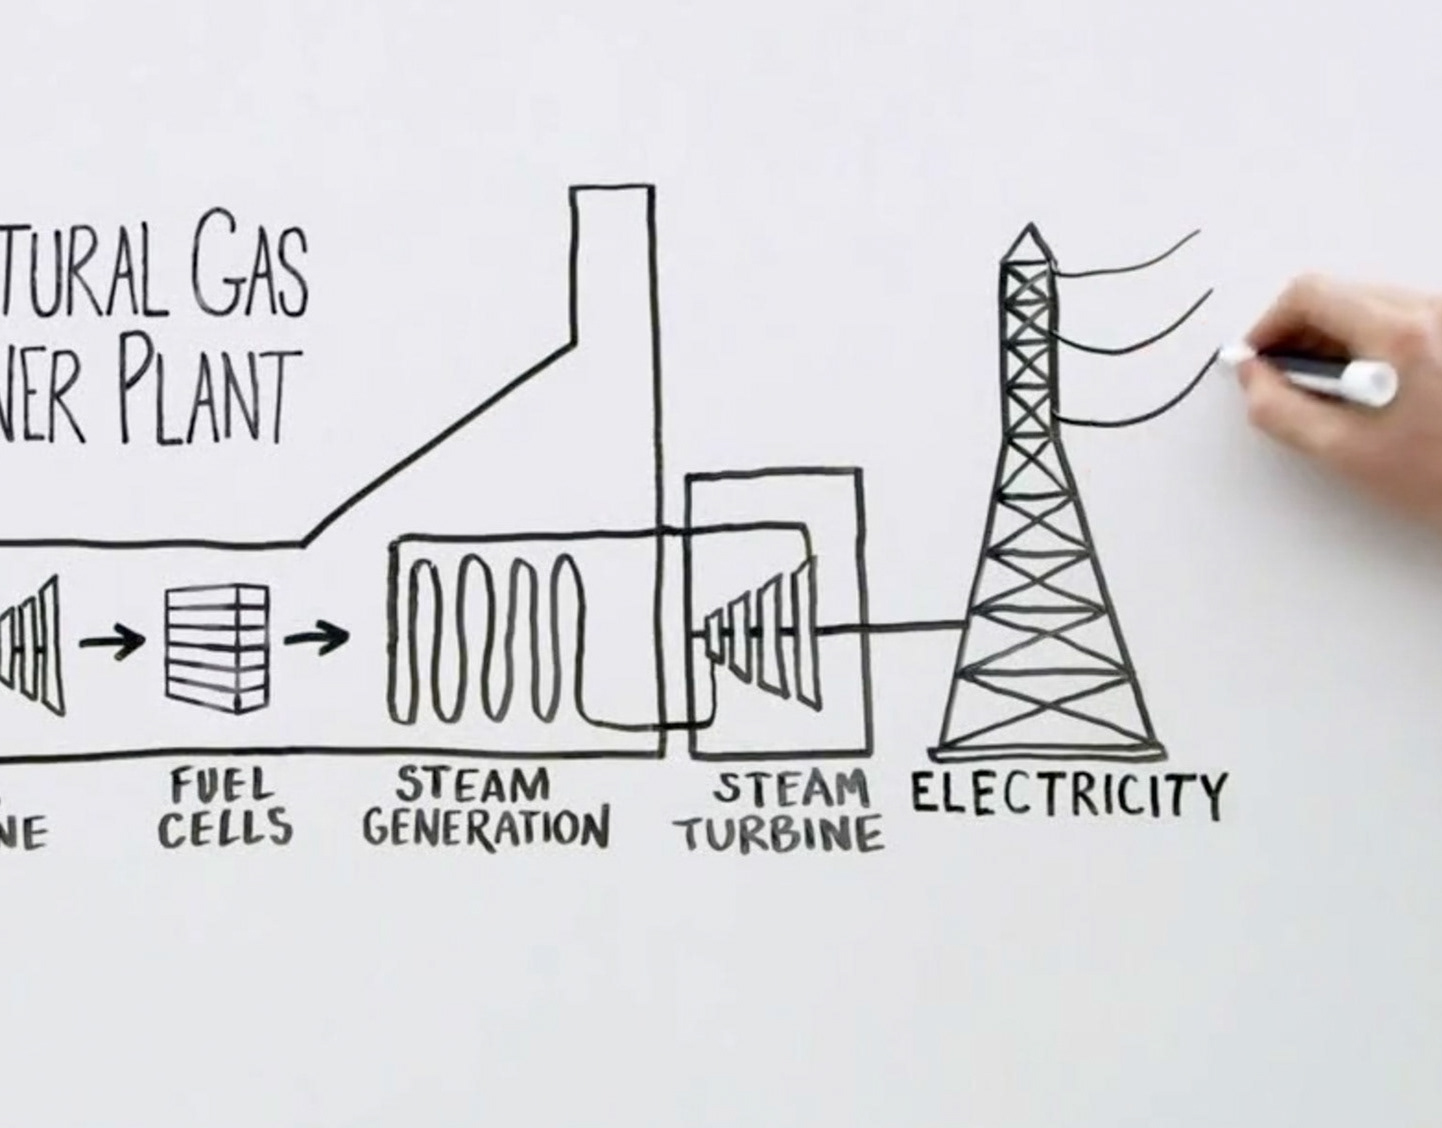 TURAL GAS
WER PLANT
NE
FUEL
CELLS
STEAM
GENERATION
STEAM
TURBINE
ELECTRICITY